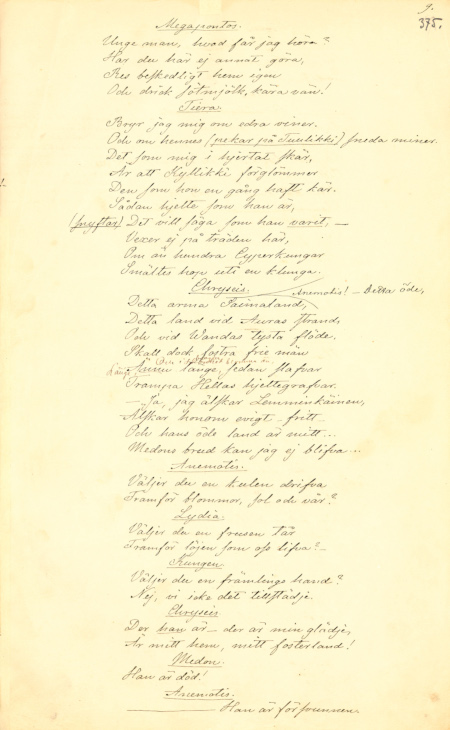 9.
375.
Megapontos.
Unge man, hvad får jag höra?
Har du här ej annat göra,
Res beskedligt hem igen
Och drick sötmjölk, kära vän!
Tiera.
Bryr jag mig om edra viner.
Och om hennes (pekar på Tuulikki) sneda miner.
Det som mig i hjertat skär,
Är att Kyllikki förglömmer
Den som hon en gång haft kär.
Sådan hjelte som han är,
(snyftar) Det vill säga som han varit, —
Vexer ej på träden här,
Om än hundra Cyperkungar
Smältes hop uti en klunga.
Chryseis.
Anemotis! — Detta öde,
Detta arma Saimaland,
Detta land vid Auras strand,
Och vid Wandas tysta flöde.
Skall dock fostra frie män
Ännu länge, sedan slafvar
Trampa Hellas hjeltegrafvar.
— Ja, jag älskar Lemminkäinen,
Älskar honom evigt — fritt
Och hans öde land är mitt...
Medons brud kan jag ej blifva...
Anemotis.
Väljer du en kulen drifva
Framför blommor, sol och vår?
Lydia.
Väljer du en frusen tår
Framför löjen som oss lifva? —
Kungen.
Väljer du en främlings hand?
Nej, vi icke det tillstädje.
Chryseis
Der han är — der är min glädje,
Är mitt hem, mitt fosterland!
Medon.
Han är död!
Anemotis.
Han är försvunnen.